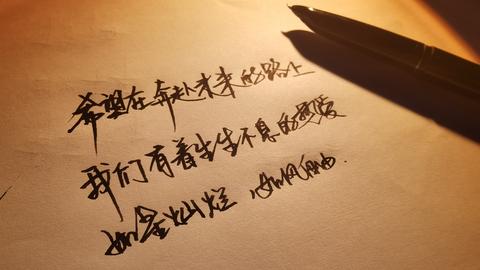 希望在奔赴未来的路上
我们有着生生不息的热爱
如星灿烂 如风自由.